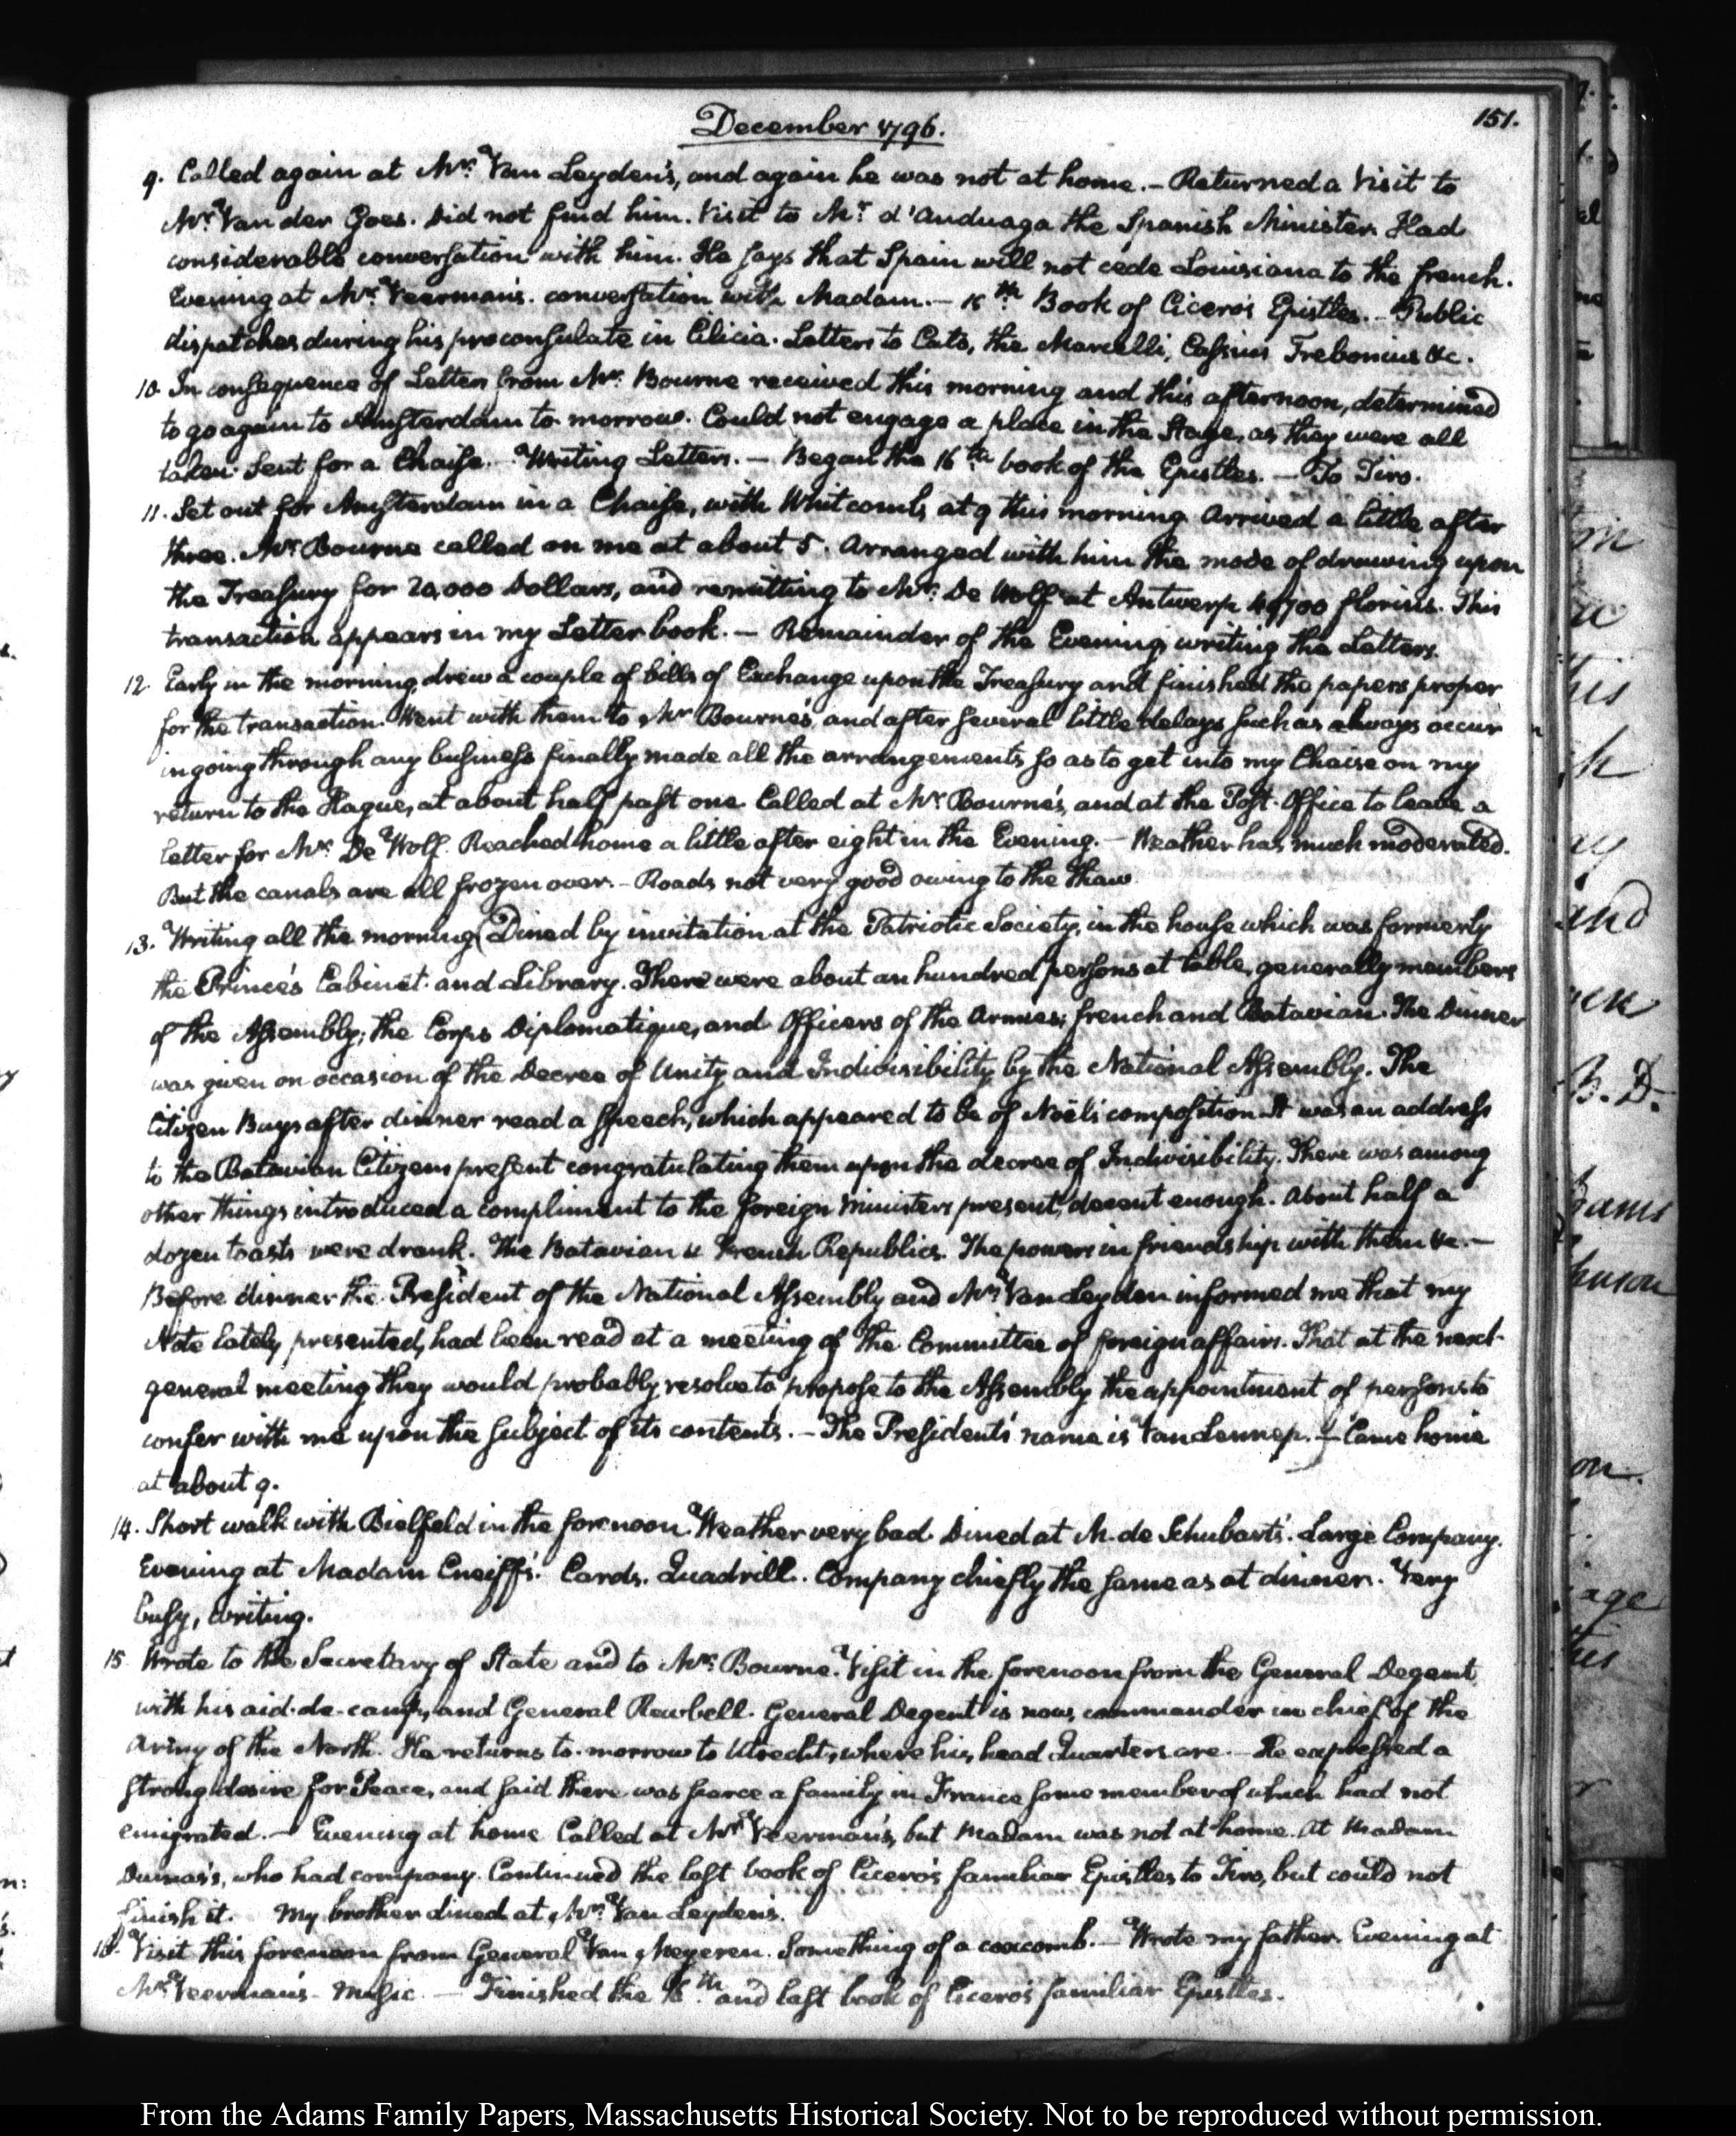 December 1796.
151.
9. Called again at Mr. Van Leyden's, and again he was not at home. – Returned a Visit to
Mr. Van der Goes. Did not find him. Visit to Mr. d'Anduaga the Spanish Minister. Had
considerable conversation with him. He says that Spain will not cede Louisiana to the french.
Evening at Mr. Veerman's. conversation with Madam. – 15th Book of Cicero's Epistles. – Public
dispatches during his proconsulate in Cilicia. Letters to Cato, the Marcelli, Cassius Trebonius &c.
10. In consequence of Letters from Mr. Bourne received this morning and this afternoon, determined
to go again to Amsterdam to-morrow. Could not engage a place in the Stage, as they were all
taken. Sent for a Chaise. Writing Letters. – Began the 16th book of the Epistles. – To Tiro.
11. Set out for Amsterdam in a Chaise, with Whitcomb, at 9 this morning. Arrived a little after
three. Mr. Bourne called on me at about 5. Arranged with him the mode of drawing upon
the Treasury for 20,000 Dollars, and remitting to Mr. De Wolf at Antwerp florins. This
transaction appears in my Letter book. – Remainder of the Evening writing the Letters.
12. Early in the morning, drew a couple of bills of Exchange upon the Treasury and finished the papers proper
for the transaction. Went with them to Mr. Bourne's, and after several little delays such as always occur
in going through any business finally made all the arrangements so as to get into my Chaise on my
return to the Hague, at about half past one. Called at Mr. Bourne's, and at the Post-Office to leave a
letter for Mr. De Wolf. Reached home a little after eight in the Evening. – Weather has much moderated.
But the canals are all frozen over. – Roads not very good owing to the thaw.
13. Writing all the morning. Dined by invitation at the Patriotic Society, in the house which was formerly
the Prince's Cabinet and Library. There were about an hundred persons at table, generally members
of the Assembly; the Corps Diplomatique, and Officers of the Armies; french and Batavian. The Dinner
was given on occasion of the Decree of Unity and Indivisibility by the National Assembly. The
Citizen Buys after dinner read a speech, which appeared to be of Noël's composition. It was an address
to the Batavian Citizens present congratulating them upon the decree of Indivisibility. There was among
other things introduced a compliment to the foreign Ministers present, decent enough. About half a
dozen toasts were drank. The Batavian & French Republics. The powers in friendship with them &c. –
Before dinner the President of the National Assembly and Mr. Van Leyden informed me that my
Note lately presented, had been read at a meeting of the Committee of foreign affairs. That at the next
general meeting they would probably resolve to propose to the Assembly the appointment of persons to
confer with me upon the subject of its contents. – The President's name is Van Lennep. – Came home
at about 9.
14. Short walk with Bielfeld in the forenoon. Weather very bad. Dined at M. de Schubart's. Large Company.
Evening at Madam Cneiff's. Cards. Quadrill. Company chiefly the same as at dinner. Very
busy, writing.
15. Wrote to the Secretary of State and to Mr. Bourne. Visit in the forenoon from the General Degent
with his aid-de-camp, and General Rewbell. General Degent is now, commander in chief of the
Army of the North. He returns to-morrow to Utrecht, where his head Quarters are. – He expressed a
strong desire for Peace, and said there was scarce a family in France some member of which had not
emigrated. – Evening at home. Called at Mr. Veerman's, but Madam was not at home. At Madam
Dumas's, who had company. Continued the last book of Cicero's familiar Epistles to Tiro, but could not
finish it. My brother dined at Mr. Van Leyden's.
16. Visit this forenoon from General Van Meyeren. Something of a coxcomb. – Wrote my father. Evening at
Mr. Veerman's – Music. – Finished the 16th and last book of Cicero's familiar Epistles.
From the Adams Family Papers, Massachusetts Historical Society. Not to be reproduced without permission.